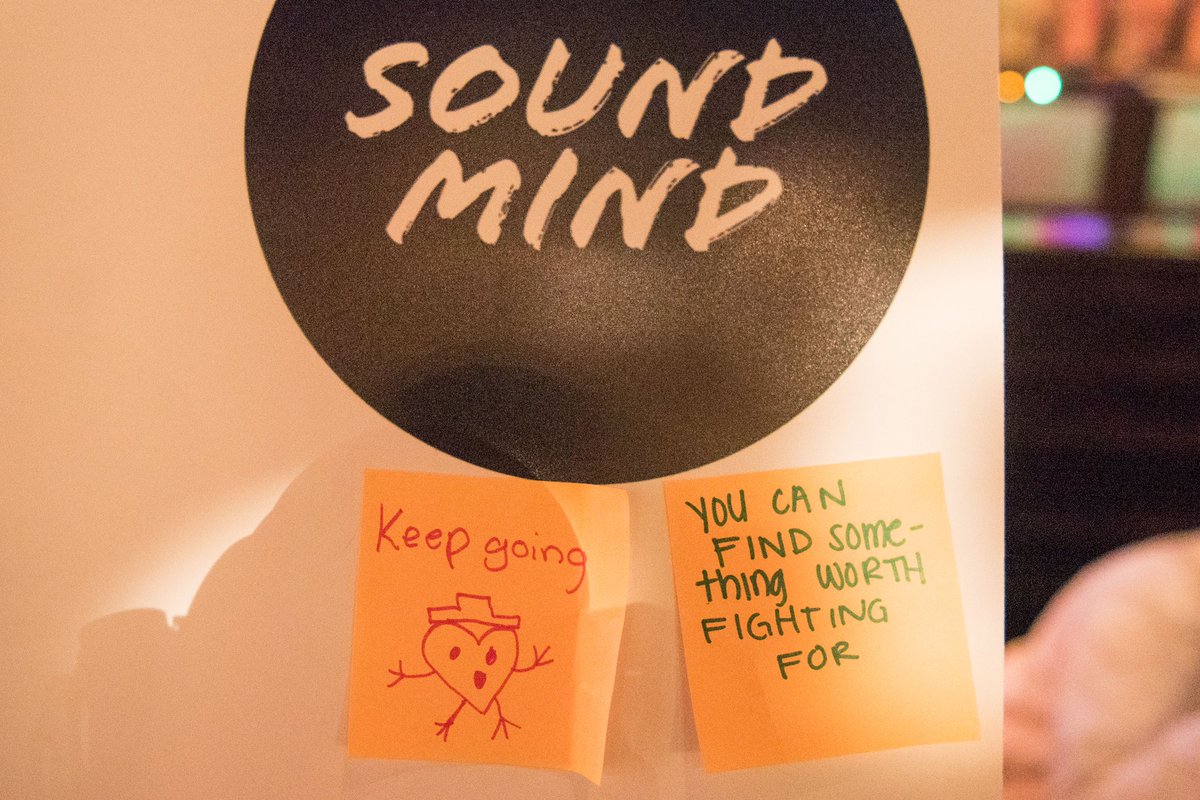 SOUND
MIND
Keep going
YOU CAN
FIND SOME-
thing WORTH
FIGHTING
FOR